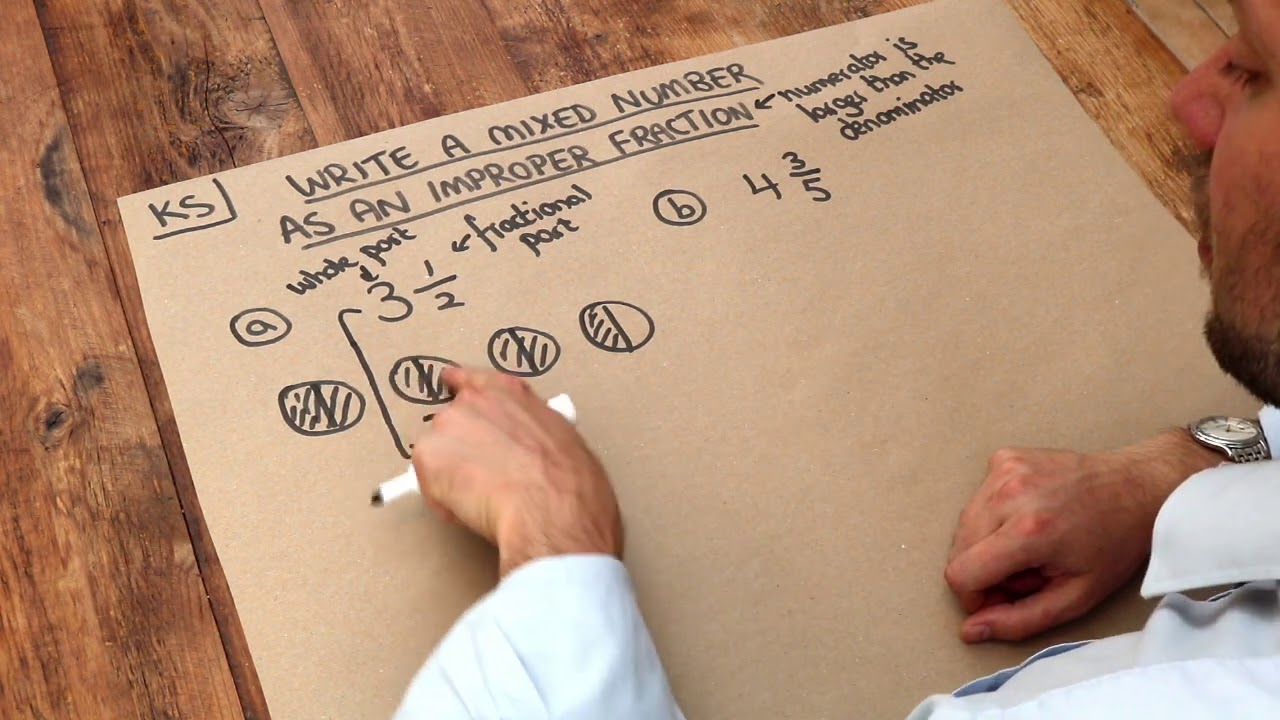 KS
WRITE A MIXED NUMBER
AS AN IMPROPER FRACTION
← numerator is
larger than the
denominator
whole part
← fractional
part
a
3 1/2
b
4 3/5